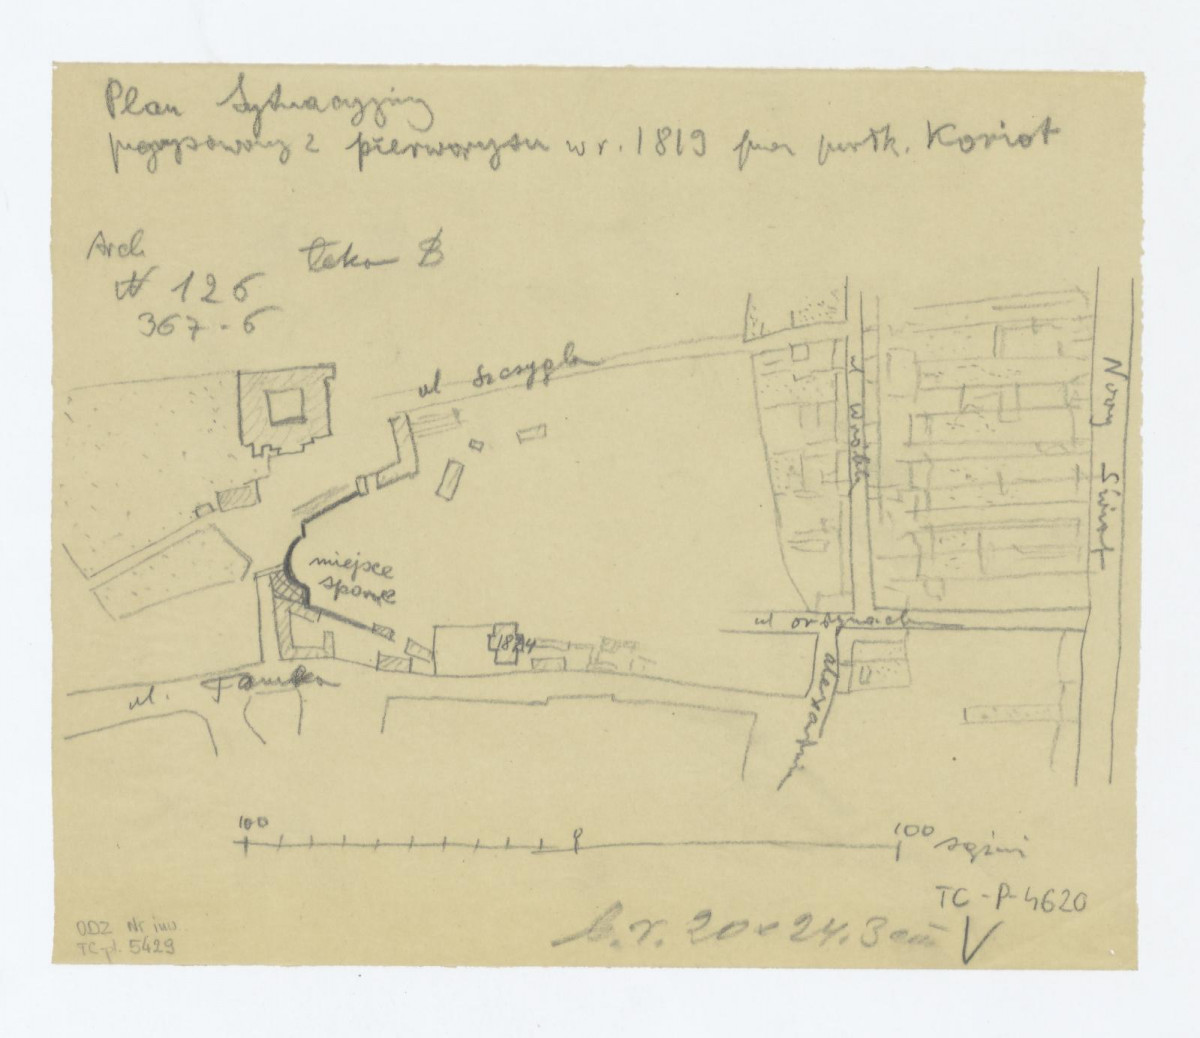 Plan Sytuacyjny
przerysowany z pierworysu w r. 1819 przez Koriot
Arch
N 126
367 - 6
teka B
ul Szczygla
ul wróbla
Nowy Świat
miejsce
sporne
1824
ul ordynacka
ul. Tamka
100
0
100 sążni
TC-P-4620
V
b.r. 20 x 24.3 cm
ODZ Nr inw.
TC-pl. 5429